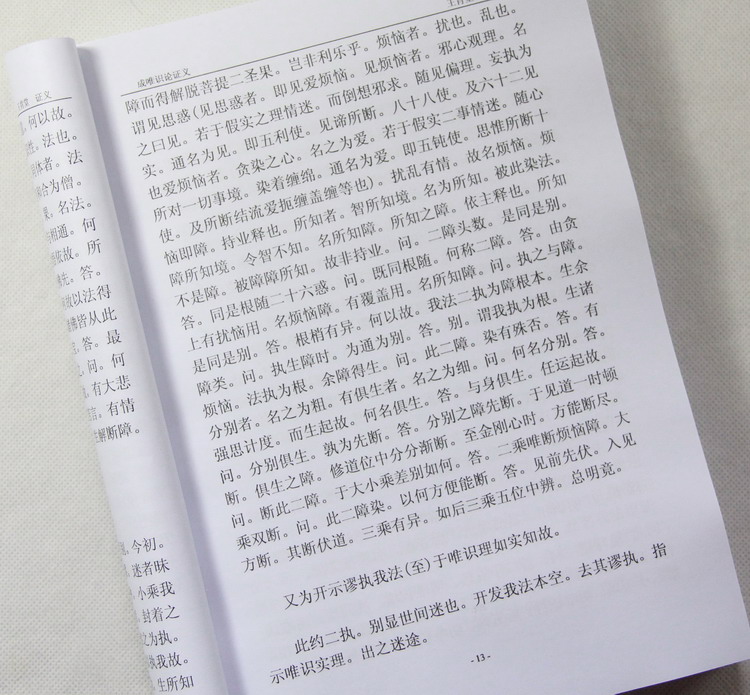 成唯识论证义
障而得解脱菩提二圣果。岂非利乐乎。烦恼者。扰也。乱也。
谓见思惑(见思惑者。即见爱烦恼。见烦恼者。邪心观理。名
之曰见。若于假实之理情迷。而倒想邪求。随见偏理。妄执为
实。通名为见。即五利使。见谛所断。八十八使。及六十二见
也爱烦恼者。贪染之心。名之为爱。若于假实二事情迷。随心
所对一切事境。染着缠绵。通名为爱。即五钝使。思惟所断十
使。及所断结流爱扼缠盖缠等也)。扰乱有情。故名烦恼。烦
恼即障。持业释也。所知者。智所知境。名为所知。被此染法。
障所知境。令智不知。名所知障。所知之障。依主释也。所知
不是障。被障障所知。故非持业。问。二障头数。是同是别。
答。同是根随二十六惑。问。既同根随。何称二障。答。由贪
上有扰恼用。名烦恼障。有覆盖用。名所知障。问。执之与障。
是同是别。答。根梢有异。何以故。我法二执为障根本。生余
障类。问。执生障时。为通为别。答。别。谓我执为根。生诸
烦恼。法执为根。余障得生。问。此二障。染有殊否。答。有
分别者。名之为粗。有俱生者。名之为细。问。何名分别。答。
强思计度。而生起故。何名俱生。答。与身俱生。任运起故。
问。分别俱生。孰为先断。答。分别之障先断。于见道一时顿
断。俱生之障。修道位中分分渐断。至金刚心时。方能断尽。
问。断此二障。于大小乘差别如何。答。二乘唯断烦恼障。大
乘双断。问。此二障染。以何方便能断。答。见前先伏。入见
方断。其断伏道。三乘有异。如后三乘五位中辨。总明竟。
又为开示谬执我法(至)于唯识理如实知故。
此约二执。别显世间迷也。开发我法本空。去其谬执。指
示唯识实理。出之迷途。
- 13 -
证义
何以故。
性。法也。
体者。法
合为僧。
名法。
相通。何
故。所
先。答。
以法得
皆从此
答。最
问。何
有大悲
有情
解断障。
今初。
迷者昧
小乘我
封着之
为执。
执我故。
生所知